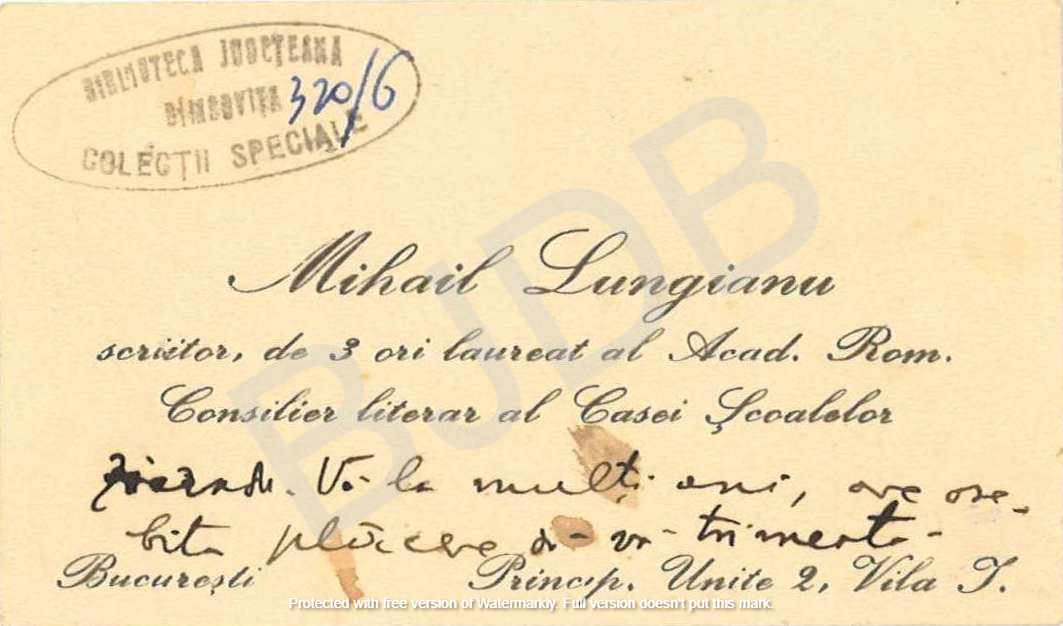 BIBLIOTECA JUDEȚEANA
DÎMBOVIȚA 320/6
COLECȚII SPECIALE
BJDB
Mihail Lungianu
scriitor, de 3 ori laureat al Acad. Rom.
Consilier literar al Casei Școalelor
Vă la mulți ani, are ose-
bita plăcere
București Princip. Unite 2, Vila J.
Protected with free version of Watermarkly. Full version doesn't put this mark.